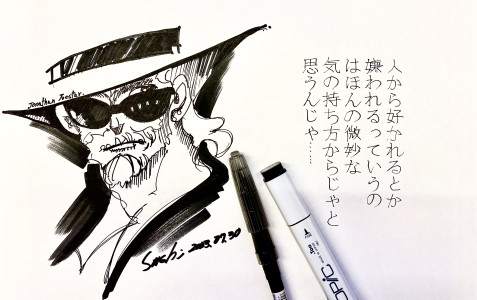 人から好かれるとか
嫌われるっていうの
はほんの微妙な
気の持ち方からじゃと
思うんじゃ……
Jonathan Joestar
2023.07.30